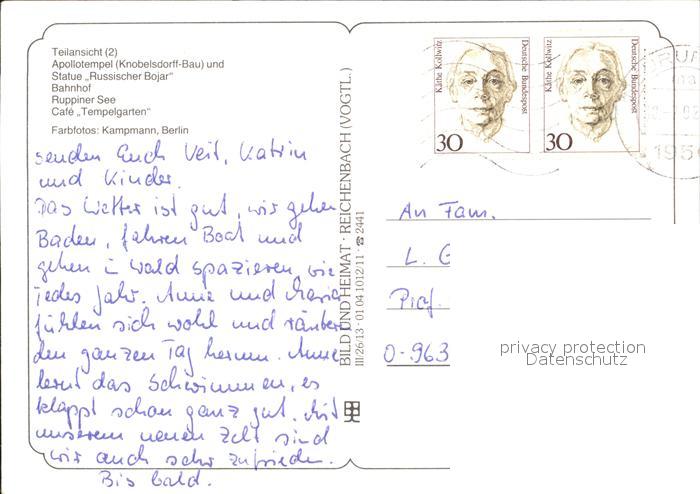 Teilansicht (2)
Apollotempel (Knobelsdorff-Bau) und
Statue „Russischer Bojar“
Bahnhof
Ruppiner See
Café „Tempelgarten“
Farbfotos: Kampmann, Berlin
senden Euch Veit, Katrin
und Kinder.
Das Wetter ist gut, wir gehen
Baden, fahren Boot und
gehen i Wald spazieren, wie
jedes Jahr. Anne und Maria
fühlen sich wohl und räubern
den ganzen Tag herum. Anne
lernt das Schwimmen, es
klappt schon ganz gut. Mit
unserem neuen Zelt sind
wir auch sehr zufrieden.
Bis bald.
BILD UND HEIMAT · REICHENBACH (VOGTL.)
III/26/13 · 01 04 1012/11 · ☎ 2441
Käthe Kollwitz
Deutsche Bundespost
30
Käthe Kollwitz
Deutsche Bundespost
30
An Fam.
L. G
Prof.
O-963
privacy protection
Datenschutz